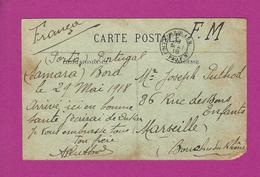 França
CARTE POSTALE
F.M
Porto Portugal
(Samara) Bord
le 29 Mai 1918
Arrivé ici en bonne
santé
Je vous embrasse tous
ton frère
Mr Joseph
86 Rue des Bons
Enfants
(Marseille)
Bouches du Rhône